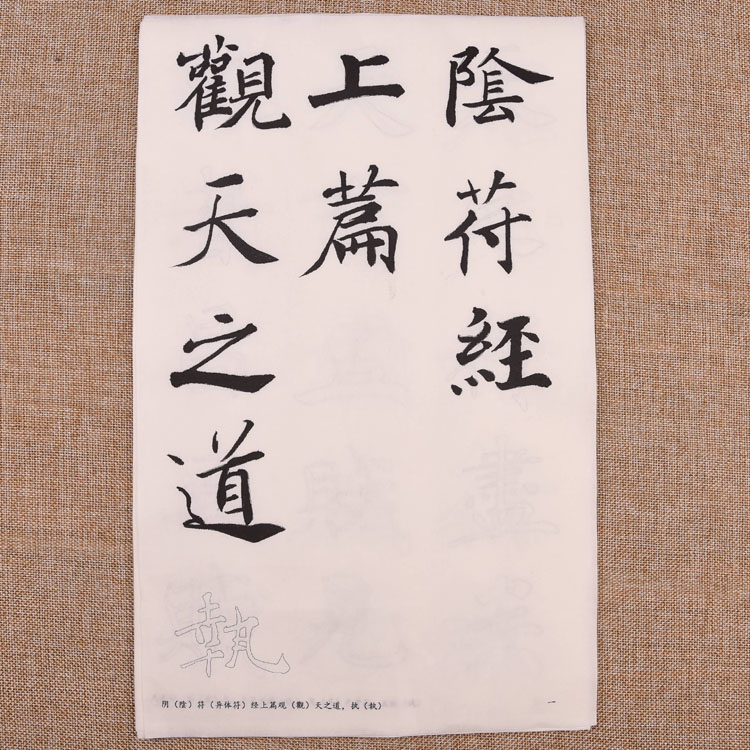 陰苻經
上篇
觀天之道
執
阴（陰）符（异体符）经上篇观（觀）天之道，执（執）
一